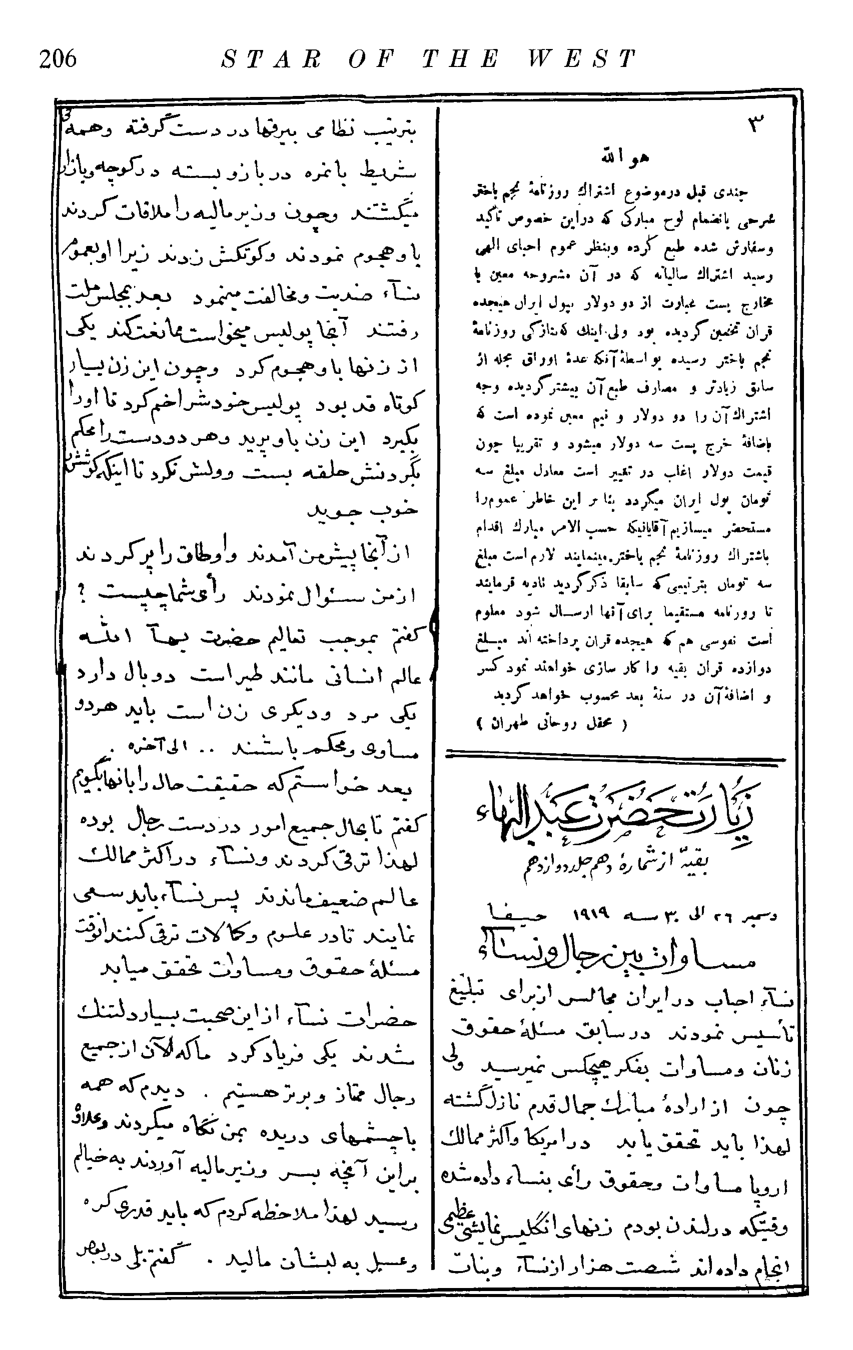 206
STAR OF THE WEST
٣
هو الله
چندی قبل درموضوع اشتراك روزنامهٔ نجم باختر
شرحی بانضمام لوح مبارکی که دراین خصوص تأکید
وسفارش شده طبع کرده وبنظر عموم احبای الهی
رسید اشتراك سالیانه که در آن مشروحه معین با
مخارج پست عبارت از دو دولار بپول ایران هیجده
قران تخمین گردیده بود ولی اینك که بتازگی روزنامهٔ
نجم باختر رسیده بواسطهٔ آنکه عدهٔ اوراق مجله از
سابق زیادتر و مصارف طبع آن بیشتر گردیده وجه
اشتراك آن را دو دولار و نیم معین نموده است که
باضافهٔ خرج پست سه دولار میشود و تقریبا چون
قیمت دولار اغلب در تغییر است معادل مبلغ سه
تومان پول ایران میگردد بنا بر این خاطر عموم را
مستحضر میسازیم آقایانیکه حسب الامر مبارك اقدام
باشتراك روزنامهٔ نجم باختر مینمایند لازم است مبلغ
سه تومان بترتیبی که سابقا ذکر گردید تادیه فرمایند
تا روزنامه مستقیما برای آنها ارسال شود معلوم
است نفوسی هم که هیجده قران پرداخته اند مبلغ
دوازده قران بقیه را کار سازی خواهند نمود کسر
و اضافهٔ آن در سنهٔ بعد محسوب خواهد گردید
( محفل روحانی طهران )
زیارت حضرت عبدالبهاء
بقیهٔ از شمارهٔ دهم جلد دوازدهم
دسمبر ٢٦ الی ٣٠ سنه ١٩١٩ حیفا
مساوات بین رجال ونساء
نساء احباب در ایران مجالس از برای تبلیغ
تأسیس نمودند در سابق مسئلهٔ حقوق
زنان ومساوات بفکر هیچکس نمیرسید ولی
چون از ارادهٔ مبارك جمال قدم نازل گشته
لهذا باید تحقق یابد در امریکا واکثر ممالك
اروپا مساوات وحقوق رأی بنساء داده شده
وقتیکه در لندن بودم زنهای انگلیس نمایشی عظیمی
انجام داده اند شصت هزار از نساء وبنات
بترتیب نظامی بیرقها در دست گرفته وهمه
شریط بانمره در بازو بسته در کوچه وبازار
میگشتند وچون وزیر مالیه را ملاقات کردند
باو هجوم نمودند وکوتکش زدند زیرا او بعموم
نساء ضدیت ومخالفت مینمود بعد بمجلس ملت
رفتند آنجا پولیس میخواست ممانعت کند یکی
از زنها باو هجوم کرد وچون این زن بسیار
کوتاه قد بود پولیس خودش را خم کرد تا او را
بگیرد این زن باو پرید وهر دو دست را محکم
بگردنش حلقه بست وولش نکرد تا اینکه گوشش
خوب جوید
از آنجا پیش من آمدند واوطاق را پر کردند
از من سئوال نمودند رأی شما چیست ؟
گفتم بموجب تعالیم حضرت بهآ الله
عالم انسانی مانند طیر است دو بال دارد
یکی مرد ودیگری زن است باید هردو
مساوی ومحکم باشند .. الی آخره .
بعد خواستم که حقیقت حال را بآنها بگویم
گفتم تا بحال جمیع امور در دست رجال بوده
لهذا ترقی کردند ونساء در اکثر ممالك
عالم ضعیف ماندند پس نساء باید سعی
نمایند تا در علوم وکمالات ترقی کنند آنوقت
مسئلهٔ حقوق ومساوات تحقق میابد
حضرات نساء از این صحبت بسیار دلتنك
شدند یکی فریاد کرد ما که الآن از جمیع
رجال ممتاز وبرتر هستیم . دیدم که همه
باچشمهای دریده بمن نگاه میکردند وعلاوه
براین آنچه بسر وزیر مالیه آوردند به خیالم
رسید لهذا ملاحظه کردم که باید قدری کره
وعسل به لبشان مالید . گفتم بلی در بعض